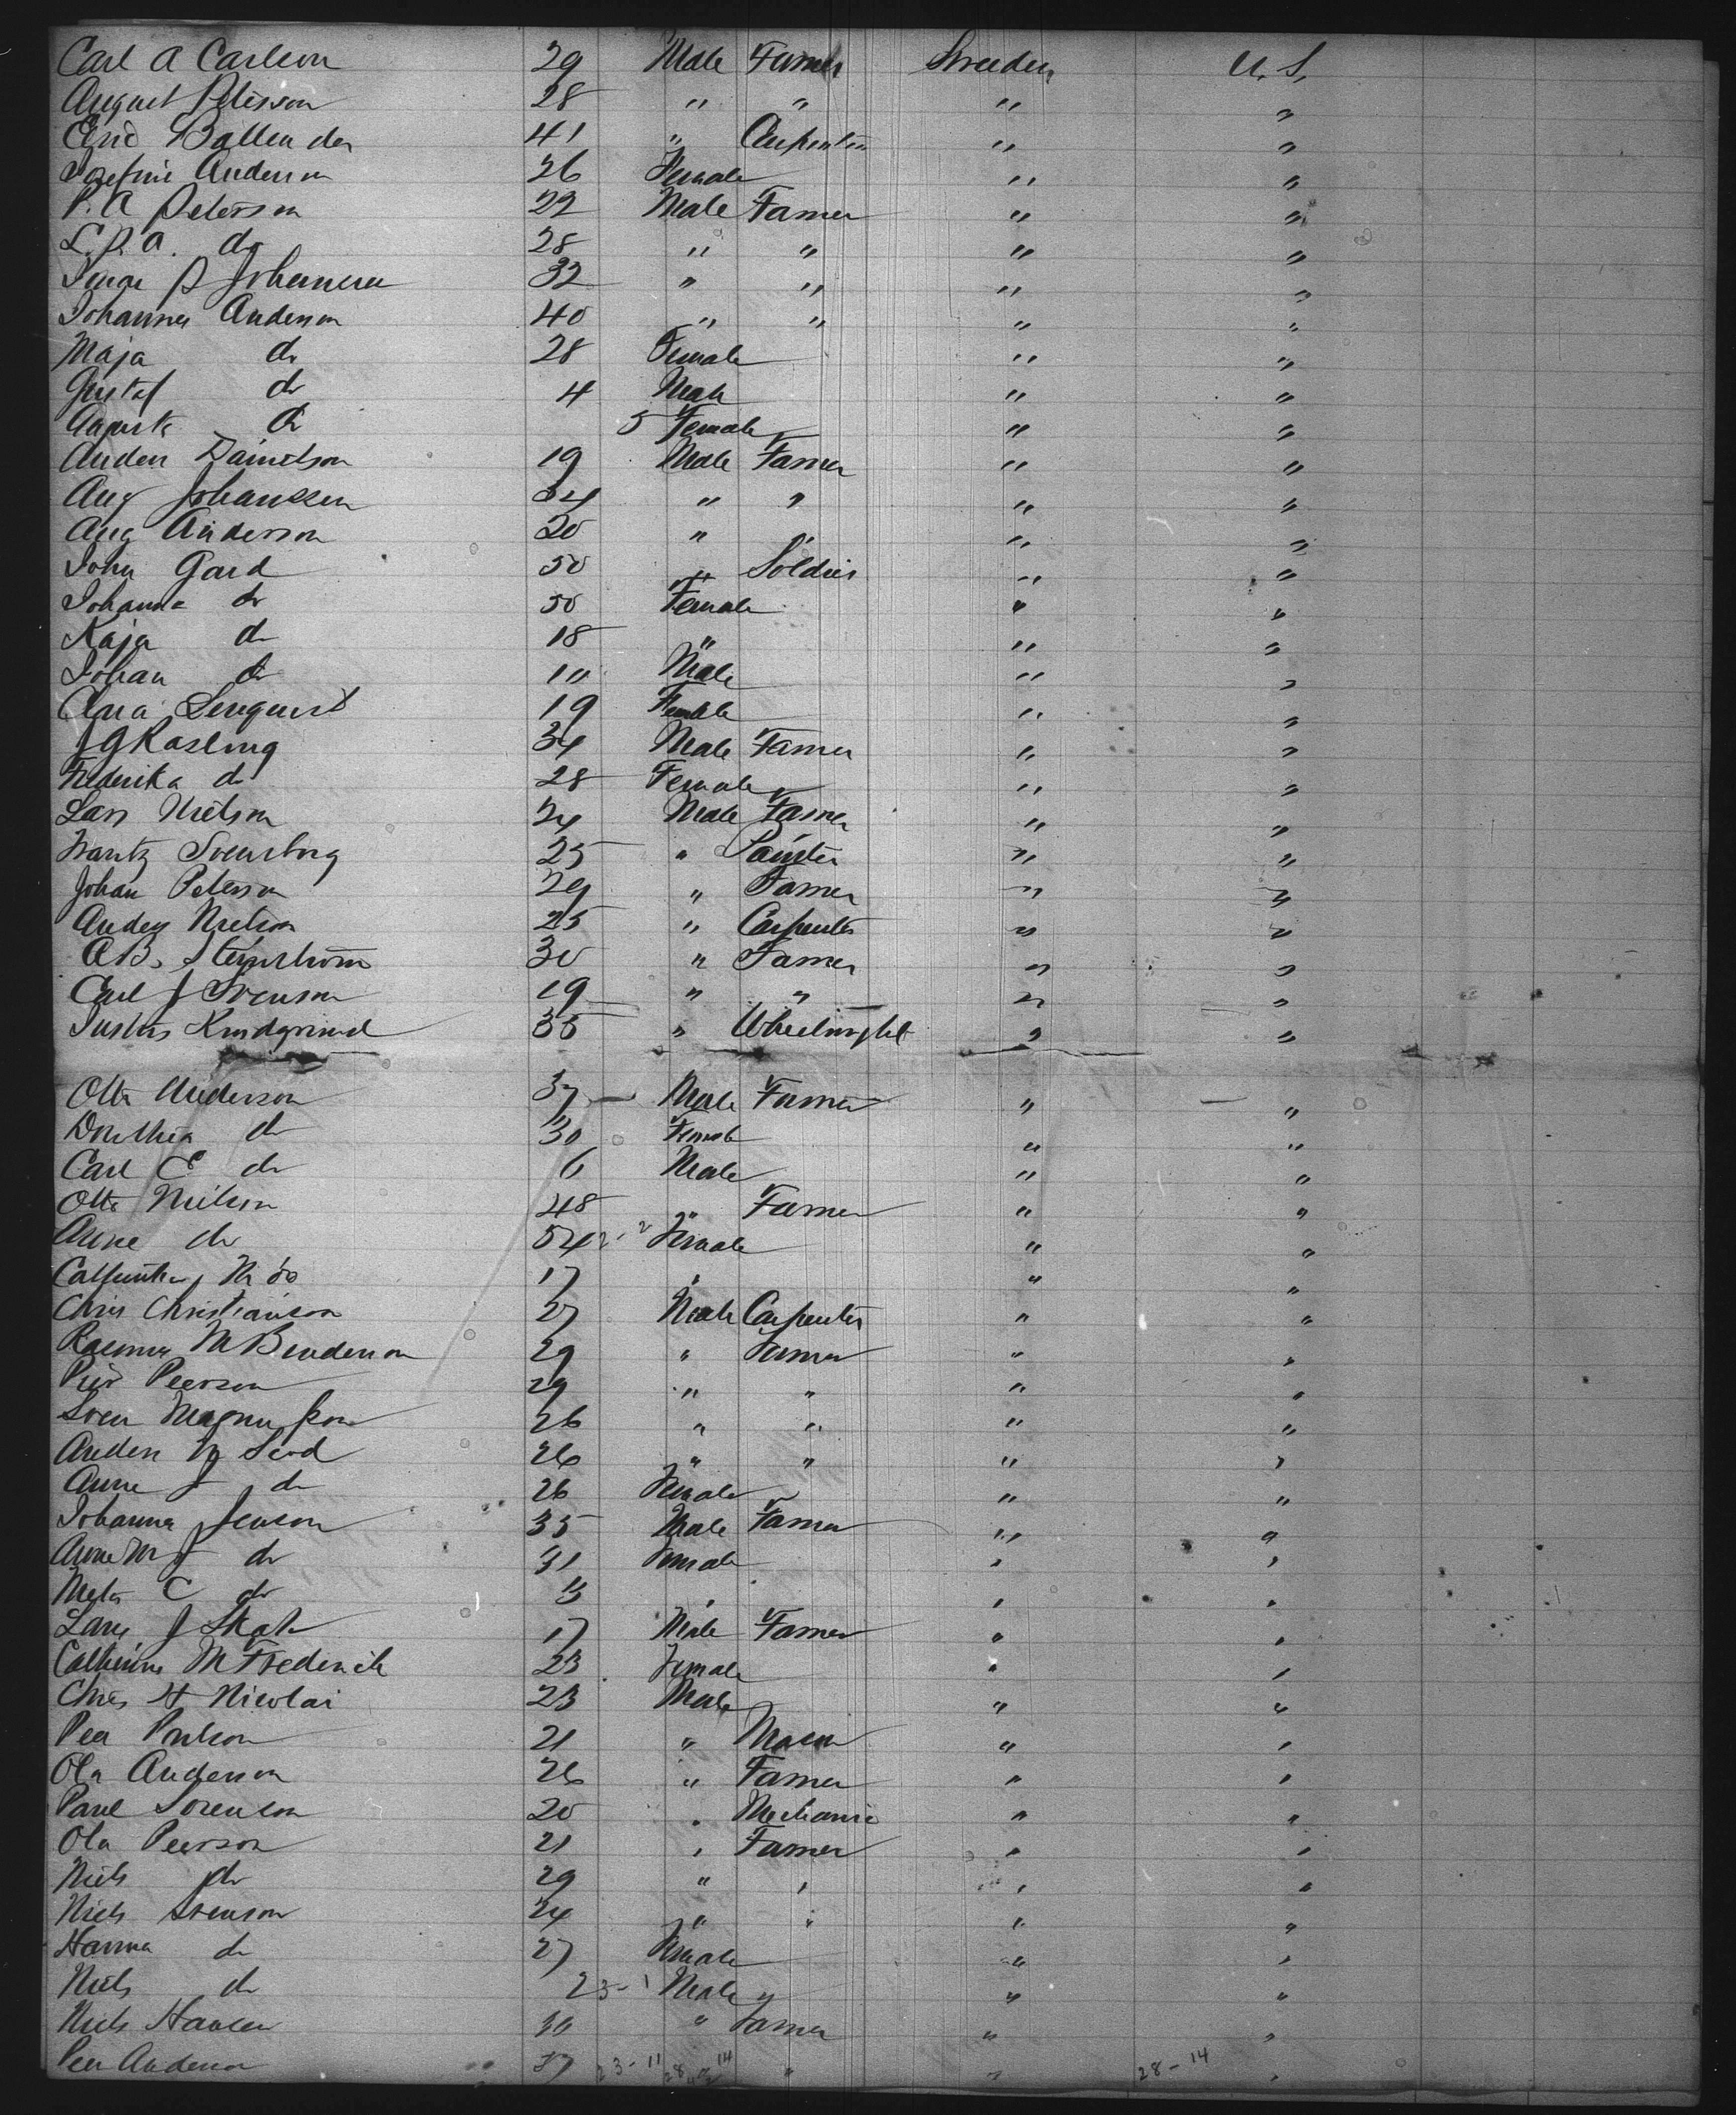 Carl A Carlson 29 Male Farmer Sweden U. S.
August Peterson 28 " " " "
41 " Carpenter " "
Josefine Anderson 26 Female " "
P. A Peterson 22 Male Farmer " "
L. P. A. do 28 " " " "
P Johannesen 32 " " " "
Johannes Anderson 40 " " " "
Maja do 28 Female " "
Gustaf do 4 Male " "
Augusta do 5 Female " "
Anders Danielson 19 Male Farmer " "
Aug Johanssen 34 " " " "
Aug Anderson 20 " " " "
John Gard 50 " Soldier " "
Johanna do 50 Female " "
Kaja do 18 " " "
Johan do 10 Male " "
19 Female " "
J G Rasling 34 Male Farmer " "
Frederika do 28 Female " "
Lars Nielson 24 Male Farmer " "
Svensborg 25 " Painter " "
Johan Peterson 29 " Farmer " "
Anders Nielson 25 " Carpenter " "
A B. Stenstrom 30 " Farmer " "
Carl J Svenson 19 " " " "
Justus 35 " Wheelwright " "
Otto Anderson 37 Male Farmer " "
Dorthea do 30 Female " "
Carl E do 6 Male " "
Otto Nielson 48 " Farmer " "
Anne do 54 Female " "
M do 17 " " "
Chris Christianson 27 Male Carpenter " "
Rasmus M 29 " Farmer " "
Peerson 29 " " " "
Sven Magnusson 26 " " " "
Anders 26 " " " "
Anne J do 26 Female " "
Johannes Jenson 35 Male Farmer " "
Anne M J do 31 Female " "
Meta C do 3 " " "
Lars J Skat 17 Male Farmer " "
Catherine M Frederick 23 Female " "
Chris H Nicolai 23 Male " "
Per Poulson 21 " Mason " "
Ola Anderson 26 " Farmer " "
Paul Sorenson 20 " Mechanic " "
Ola Peerson 21 " Farmer " "
Niels do 29 " " " "
Niels Svenson 24 " " " "
Hanna do 27 Female " "
Niels do Male " "
Niels Hansen 30 " Farmer " "
Per Anderson 37 23-11 " " " 28-14 "